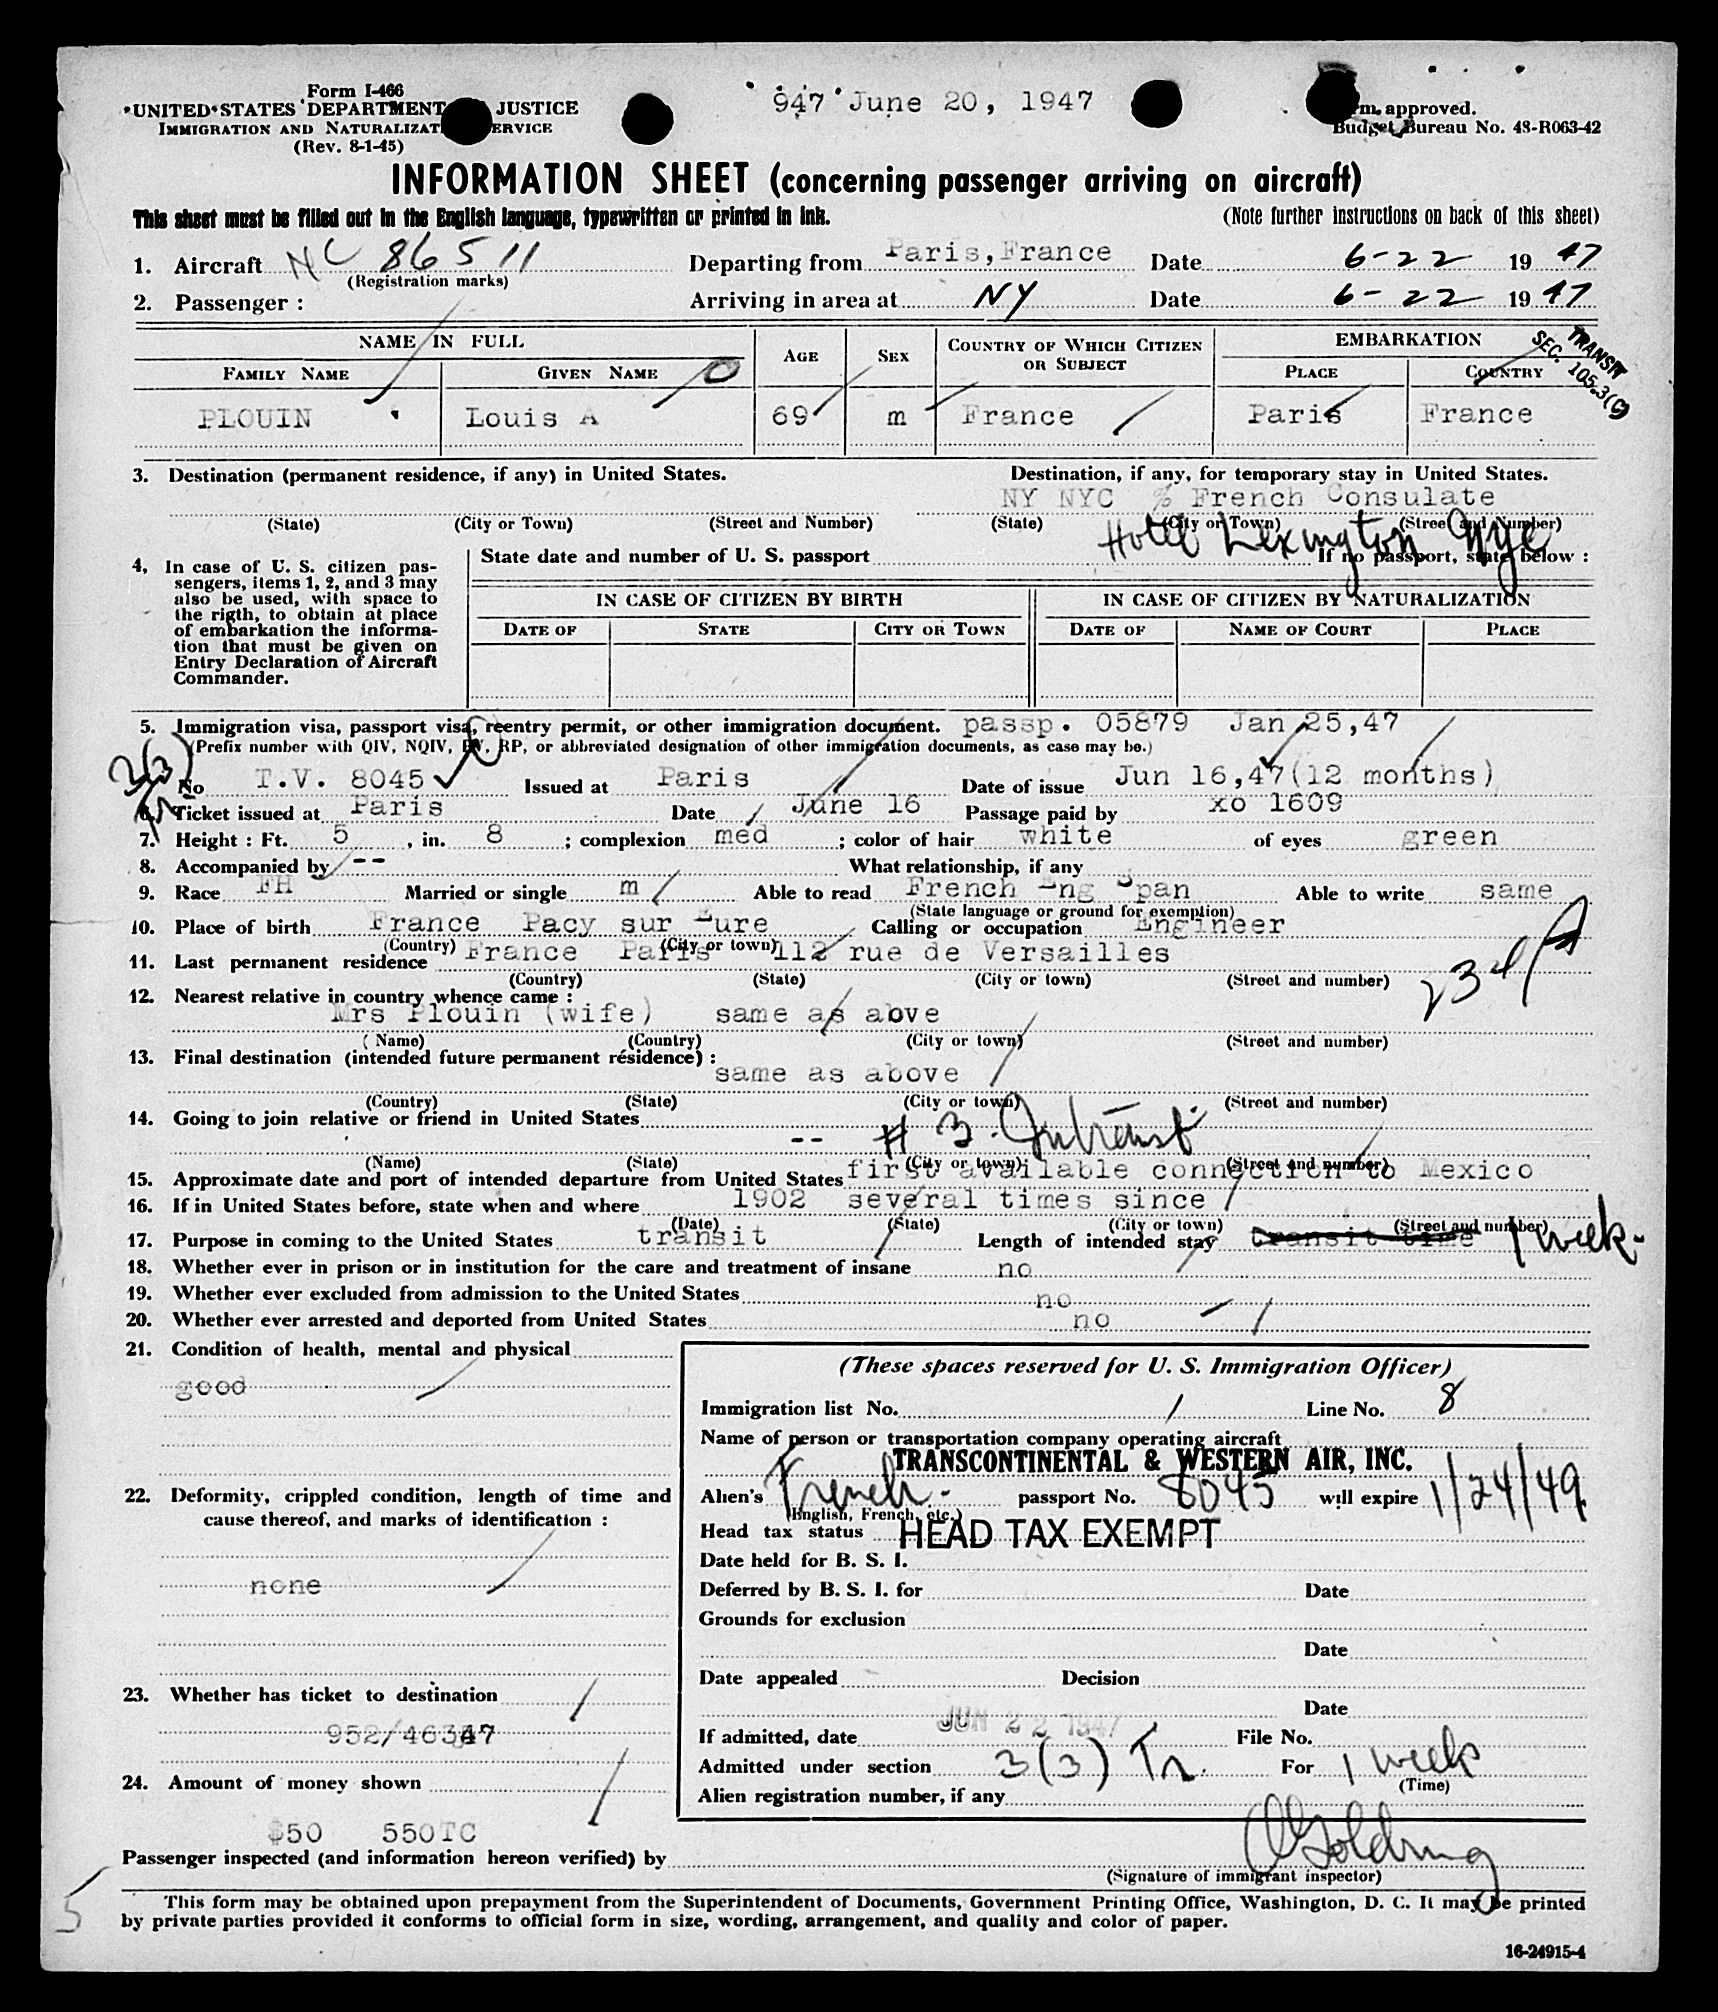 Form I-466
UNITED STATES DEPARTMENT JUSTICE
IMMIGRATION AND NATURALIZAT ERVICE
(Rev. 8-1-45)
947 June 20, 1947
rm approved.
Budget Bureau No. 43-R063-42
INFORMATION SHEET (concerning passenger arriving on aircraft)
This sheet must be filled out in the English language, typewritten or printed in ink. (Note further instructions on back of this sheet)
1. Aircraft NC 86511 Departing from Paris, France Date 6-22 1947
(Registration marks)
2. Passenger : Arriving in area at NY Date 6-22 1947
TRANSIT
SEC. 105.3(C)
NAME IN FULL AGE SEX COUNTRY OF WHICH CITIZEN OR SUBJECT EMBARKATION
FAMILY NAME GIVEN NAME PLACE COUNTRY
PLOUIN Louis A 69 m France Paris France
3. Destination (permanent residence, if any) in United States. Destination, if any, for temporary stay in United States.
NY NYC % French Consulate
(State) (City or Town) (Street and Number) (State) (City or Town) (Street and Number)
Hotel Lexington NYC
4, In case of U. S. citizen pas-
sengers, items 1, 2, and 3 may
also be used, with space to
the rigth, to obtain at place
of embarkation the informa-
tion that must be given on
Entry Declaration of Aircraft
Commander.
State date and number of U. S. passport If no passport, state below :
IN CASE OF CITIZEN BY BIRTH IN CASE OF CITIZEN BY NATURALIZATION
DATE OF STATE CITY OR TOWN DATE OF NAME OF COURT PLACE
5. Immigration visa, passport visa, reentry permit, or other immigration document. passp. 05879 Jan 25,47
(Prefix number with QIV, NQIV, PV, RP, or abbreviated designation of other immigration documents, as case may be.)
3(3)
Tr
No T.V. 8045 Issued at Paris Date of issue Jun 16,47(12 months)
6. Ticket issued at Paris Date June 16 Passage paid by xo 1609
7. Height : Ft. 5 , in. 8 ; complexion med ; color of hair white of eyes green
8. Accompanied by -- What relationship, if any
9. Race FH Married or single m Able to read French Eng Span Able to write same
(State language or ground for exemption)
10. Place of birth France Pacy sur Eure Calling or occupation Engineer
(Country) (City or town)
11. Last permanent residence France Paris 112 rue de Versailles
(Country) (State) (City or town) (Street and number)
12. Nearest relative in country whence came :
Mrs Plouin (wife) same as abve
(Name) (Country) (City or town) (Street and number)
13. Final destination (intended future permanent résidence) :
same as above
(Country) (State) (City or town) (Street and number)
14. Going to join relative or friend in United States
-- # 3. Intransit
(Name) (State) (City or town) (Street and number)
15. Approximate date and port of intended departure from United States first available connection to Mexico
16. If in United States before, state when and where 1902 several times since
(Date) (State) (City or town) (Street and number)
17. Purpose in coming to the United States transit Length of intended stay transit time 1 week-
18. Whether ever in prison or in institution for the care and treatment of insane no
19. Whether ever excluded from admission to the United States no
20. Whether ever arrested and deported from United States no
21. Condition of health, mental and physical
good
22. Deformity, crippled condition, length of time and
cause thereof, and marks of identification :
none
23. Whether has ticket to destination
24. Amount of money shown
$50 550TC
(These spaces reserved for U. S. Immigration Officer)
Immigration list No. 1 Line No. 8
Name of person or transportation company operating aircraft
TRANSCONTINENTAL & WESTERN AIR, INC.
Alien's French. passport No. 8045 will expire 1/24/49
(English, French, etc.)
Head tax status HEAD TAX EXEMPT
Date held for B. S. I.
Deferred by B. S. I. for Date
Grounds for exclusion
Date
Date appealed Decision
Date
If admitted, date JUN 22 1947 File No.
Admitted under section 3(3) Tr. For 1 week
(Time)
Alien registration number, if any
Passenger inspected (and information hereon verified) by
(Signature of immigrant inspector)
This form may be obtained upon prepayment from the Superintendent of Documents, Government Printing Office, Washington, D. C. It may be printed
by private parties provided it conforms to official form in size, wording, arrangement, and quality and color of paper.
5
16-24915-4